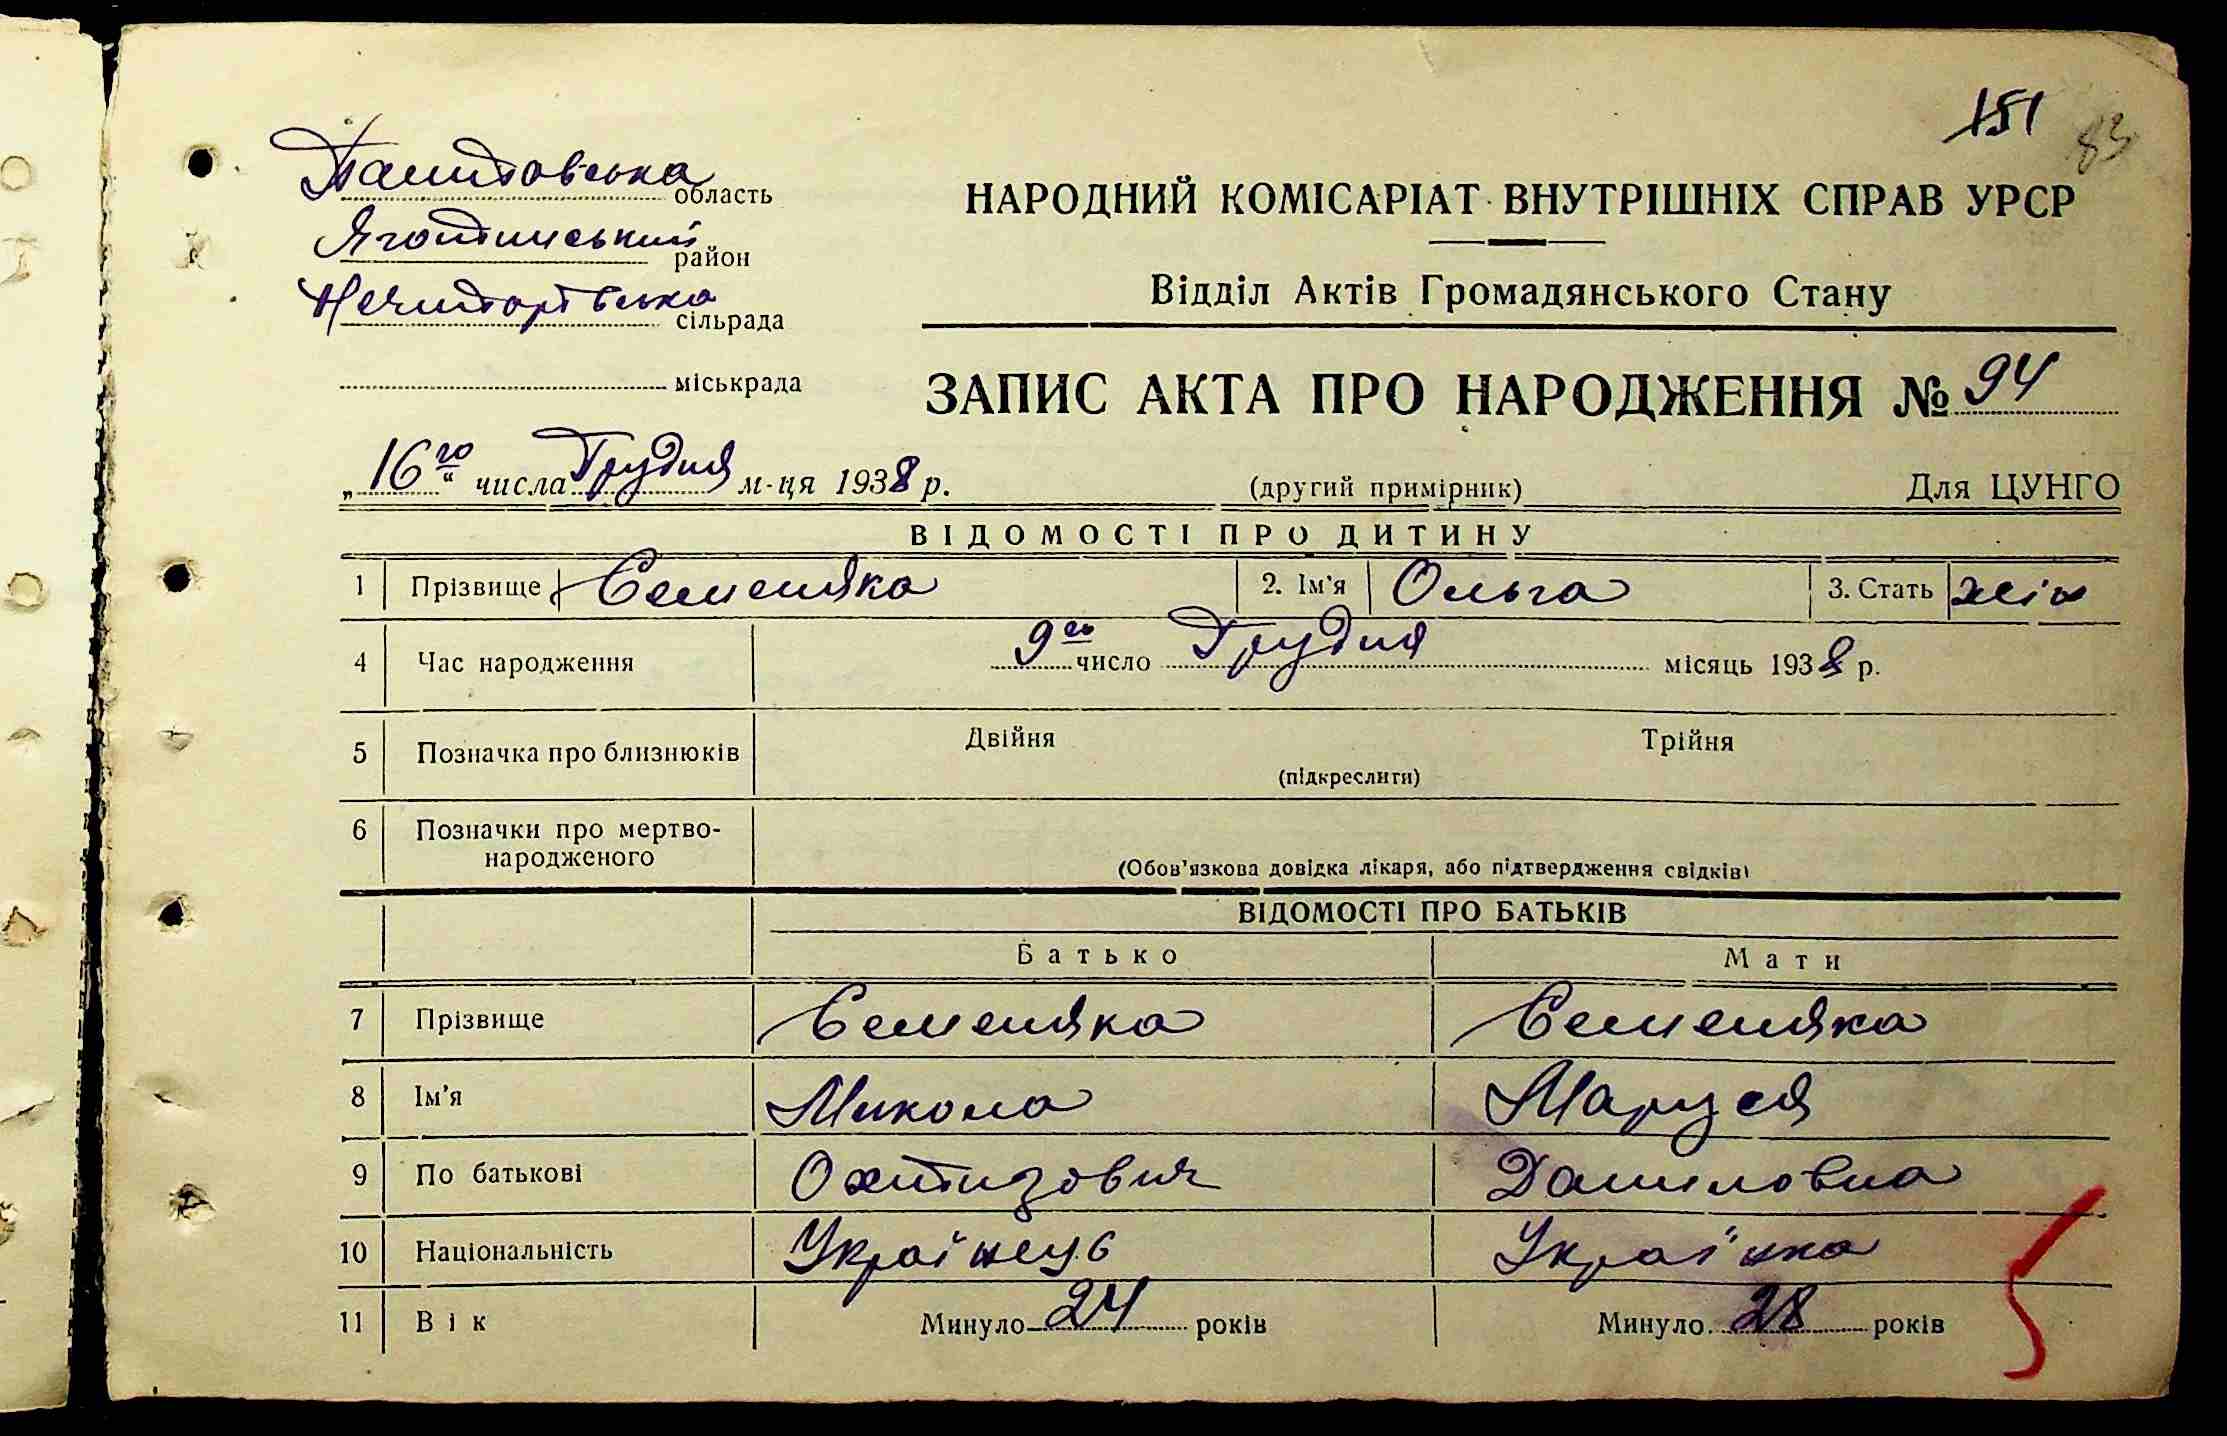 151
83
Полтовська область
Яготинський район
Нечипорівська сільрада
міськрада
НАРОДНИЙ КОМІСАРІАТ ВНУТРІШНІХ СПРАВ УРСР
Відділ Актів Громадянського Стану
ЗАПИС АКТА ПРО НАРОДЖЕННЯ № 94
„16го" числа Грудня м-ця 1938 р.
(другий примірник)
Для ЦУНГО
ВІДОМОСТІ ПРО ДИТИНУ
1 Прізвище Семеняка 2. Ім'я Ольга 3. Стать жін
4 Час народження 9го число Грудня місяць 1938 р.
5 Позначка про близнюків Двійня Трійня
(підкреслити)
6 Позначки про мертво-
народженого
(Обов'язкова довідка лікаря, або підтвердження свідків)
ВІДОМОСТІ ПРО БАТЬКІВ
Батько Мати
7 Прізвище Семеняка Семеняка
8 Ім'я Микола Маруся
9 По батькові Даниловна
10 Національність Українець Українка
11 Вік Минуло 24 років Минуло 28 років